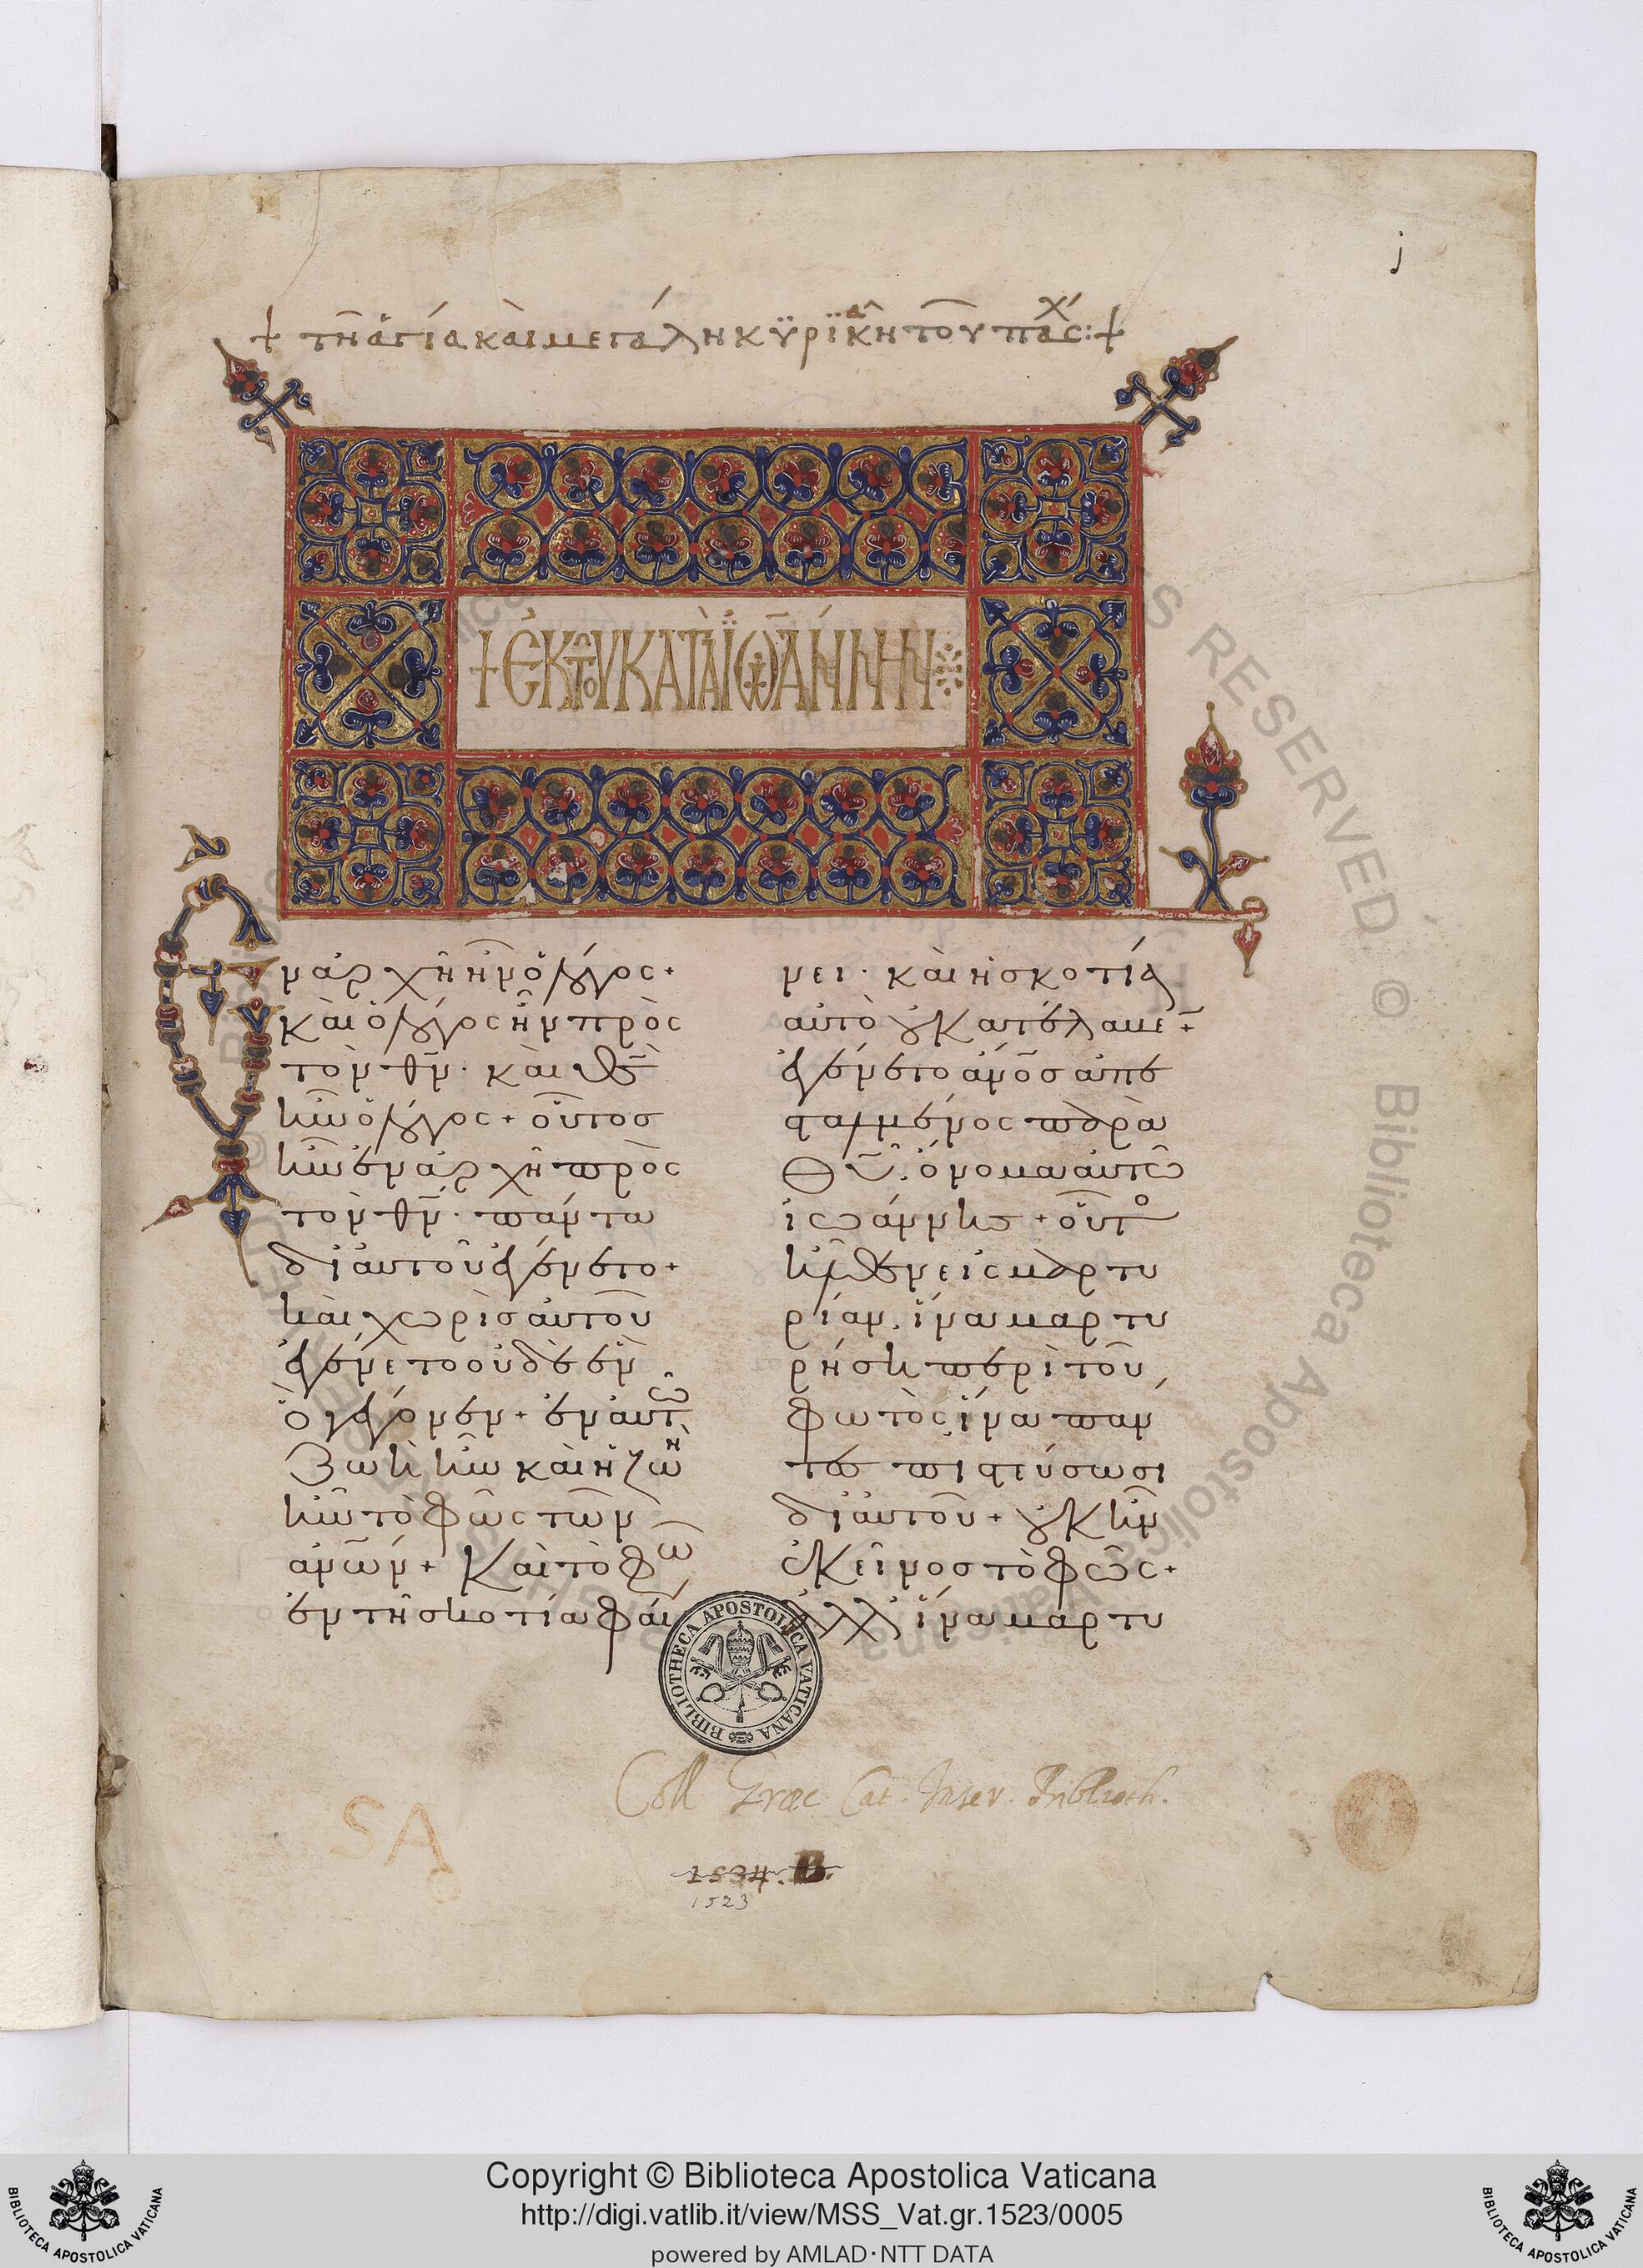 j
+ τῆ ἁγία καὶ μεγάλη κϋρϊακῆ τοῦ πάσχ :+
+ ἐκ τοῦ κατὰ ἰωάννην
Ἐν ἀρχῆ ἦν ὁ λόγος +
καὶ ὁ λόγος ἦν πρὸς
τὸν θν̄ · καὶ θς̄
ἦν ὁ λόγος + οὗτος
ἦν ἐν ἀρχῆ πρὸς
τὸν θν̄ · πάντα
δι αὐτοῦ ἐγένετο +
καὶ χωρὶς αὐτοῦ
ἐγένετο οὐδὲ ἓν
ὃ γέγονεν + ἐν αὐτῶ
ζωὴ ἦν καὶ ἡ ζωὴ
ἦν τὸ φῶς τῶν
ἀνῶν + Καὶ τὸ φῶ
ἐν τῆ σκοτία φαί
νει · καὶ ἡ σκοτία
αὐτὸ οὐ κατέλαβε +
ἐγένετο ἄνος ἀπε
σταλμένος παρὰ
Θῦ · ὄνομα αὐτῶ
ἰωάννης + οὗτο
ἦλθεν εἰς μαρτυ
ρίαν · ἵνα μαρτυ
ρήση περὶ τοῦ
φωτὸς ἵνα πάν
τες πιστεύσωσι
δι αὐτοῦ + οὐκ ἦν
ἐκεῖνος τὸ φῶς +
ἀλλ ἵνα μαρτυ
BIBLIOTHECA APOSTOLICA VATICANA
Coll Græc Cat. Inser. Biblioth.
SA
1534. B.
1523
RIGHTS RESERVED. © Biblioteca Apostolica Vaticana
Copyright © Biblioteca Apostolica Vaticana
http://digi.vatlib.it/view/MSS_Vat.gr.1523/0005
powered by AMLAD·NTT DATA
BIBLIOTECA APOSTOLICA VATICANA
BIBLIOTECA APOSTOLICA VATICANA